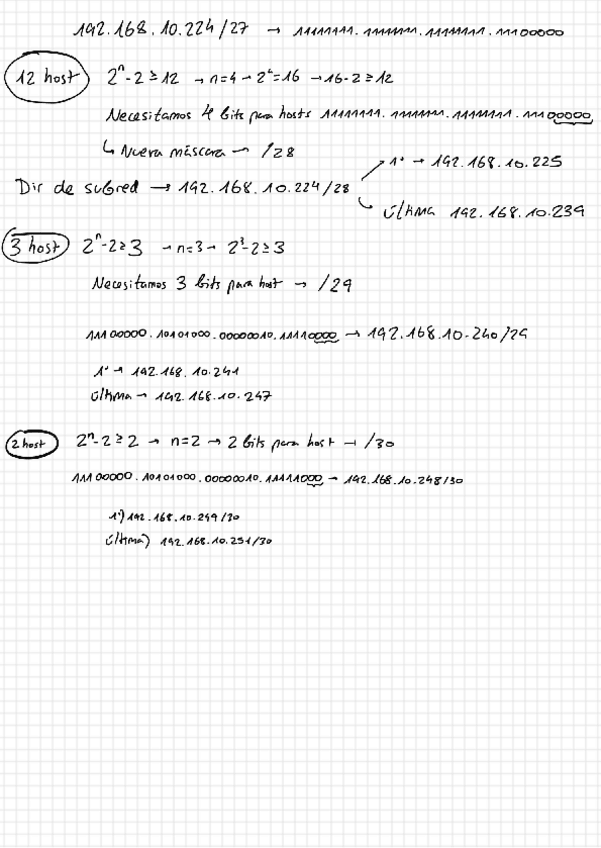 192.168.10.224/27 → 11111111.11111111.11111111.11100000
12 host 2ⁿ-2≥12 → n=4 → 2⁴=16 → 16-2≥12
Necesitamos 4 bits para hosts 11111111.11111111.11111111.11100000
↳ Nueva máscara → /28
Dir de subred → 192.168.10.224/28
1ª → 192.168.10.225
Última 192.168.10.239
3 host 2ⁿ-2≥3 → n=3 → 2³-2≥3
Necesitamos 3 bits para host → /29
11100000.10101000.00000010.11110000 → 192.168.10.240/29
1ª → 192.168.10.241
Última → 192.168.10.247
2 host 2ⁿ-2≥2 → n=2 → 2 bits para host → /30
11100000.10101000.00000010.11111000 → 192.168.10.248/30
1ª) 192.168.10.249/30
Última) 192.168.10.251/30